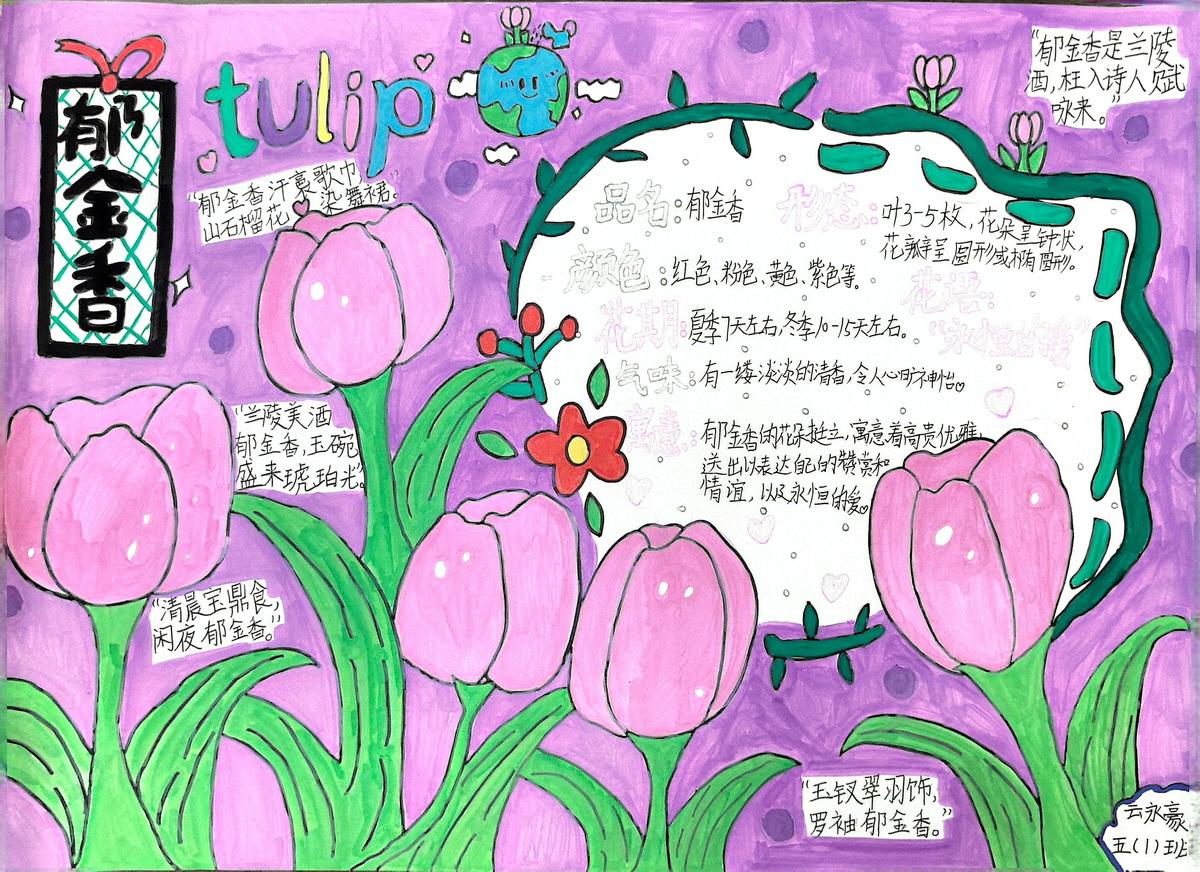 郁金香
tulip
"郁金香是兰陵
酒,枉入诗人赋
咏来。"
"郁金香汗裛歌巾,
山石榴花染舞裙。"
品名:郁金香
形态:叶3-5枚,花朵呈钟状,
花瓣呈圆形或椭圆形。
颜色:红色、粉色、黄色、紫色等。
花语:
"永恒的爱"
花期:夏季7天左右,冬季10-15天左右。
气味:有一缕淡淡的清香,令人心旷神怡。
寓意:郁金香的花朵挺立,寓意着高贵优雅,
送出以表达自己的赞赏和
情谊,以及永恒的爱。
"兰陵美酒
郁金香,玉碗
盛来琥珀光。"
"清晨宝鼎食,
闲夜郁金香。"
"玉钗翠羽饰,
罗袖郁金香。"
云永豪
五(1)班